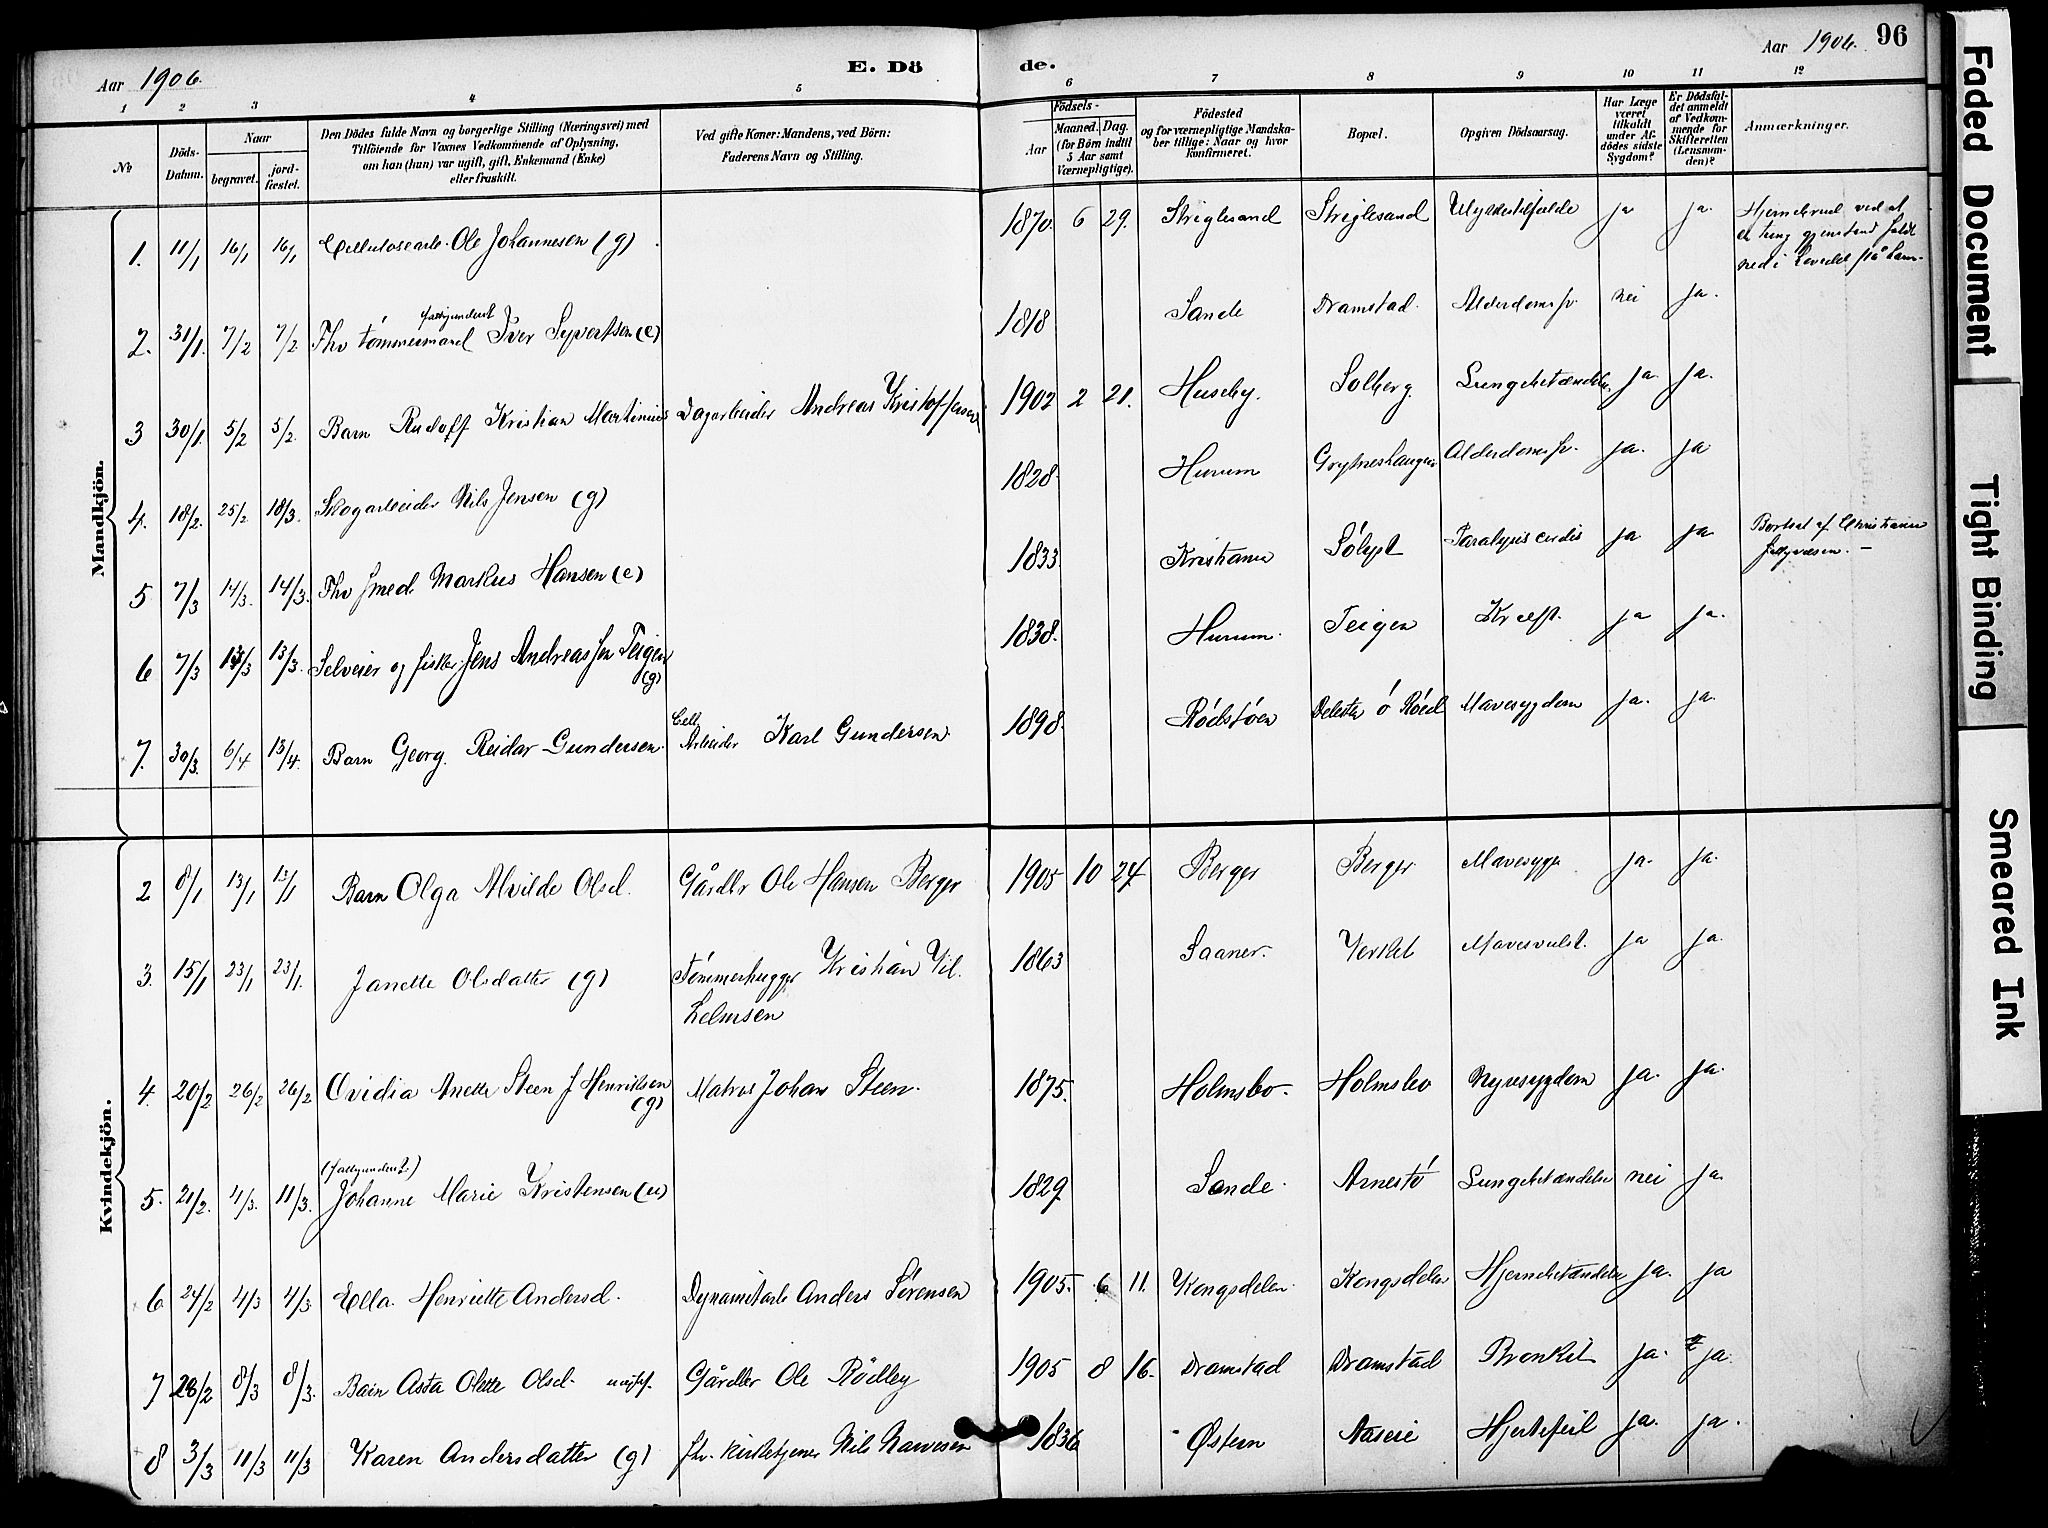 Aar 1906.
E. Dö
de.
Aar 1906.
96
1 2 3 4 5 6 7 8 9 10 11 12
No
Döds-Datum.
Naar
begravet.
jord-fæstet.
Den Dödes fulde Navn og borgerlige Stilling (Næringsvei) med
Tilföiende for Voxnes Vedkommende af Oplysning,
om han (hun) var ugift, gift, Enkemand (Enke)
eller fraskilt.
Ved gifte Koner: Mandens, ved Börn:
Faderens Navn og Stilling.
Födsels-
Aar
Maaned. Dag.
(for Börn indtil
5 Aar samt
Værnepligtige).
Födested
og for værnepligtige Mandska-
ber tillige: Naar og hvor
konfirmeret.
Bopæl.
Opgiven Dödsaarsag.
Har Læge
været
tilkaldt
under Af-
dödes sidste
Sygdom?
Er Dödsfal-
det anmeldt
af Vedkom-
mende for
Skifteretten
(Lensman-
den)?
Anmærkninger.
Mandkjön.
1. 11/1 16/1 16/1 Cellulosearb. Ole Johannesen (g) 1870. 6 29. Striglesand Striglesand Ulykkestilfælde ja ja. Hjernebrud ved at
et tung gjenstand faldt
ned i hovedet på ham.
2. 31/1. 7/2 7/2. Fhv tømmermand fattigunderst Iver Syvertsen (e) 1818 Sande Dramstad. Alderdomssv. nei ja.
3 30/1. 5/2 5/2. Barn Rudolf Kristian Martinius Dagarbeider Andreas Kristoffersen 1902 2 21. Huseby. Solberg. Lungebetændelse ja. ja.
4. 18/2. 25/2 18/3. Skogarbeider Nils Jensen (g) 1828. Hurum Grytneshaugen Alderdomssv. ja. ja
5 7/3 14/3. 14/3. Fhv smed Markus Hansen (e) 1833. Kristiania Sólyst Paralysis cordis ja ja Bortsat af Christiania
fattigvæsen. –
6 7/3 13/3 13/3. Selveier og fisker Jens Andreassen Teigen
(g) 1838. Hurum. Teigen Kræft. ja ja.
7. 30/3. 6/4 13/4. Barn Georg Reidar Gundersen. Cell. Arbeider Karl Gundersen 1898. Rødstøen ó Róed Mavesygdom ja. ja.
Kvindekjön.
2 8/1 13/1 13/1 Barn Olga Alvilde Olsd. Gårdbr Ole Hansen Berger 1905 10 24. Berger Berger Mavesyge ja. ja.
3. 15/1 23/1 23/1. Janette Olsdatter (g) Tømmerhugger Kristian Vil.
helmsen 1863 Saaner. Verket Mavesvulst. ja ja.
4. 20/2 26/2 26/2 Ovidia Anette Steen f Henriksen
(g) Matros Johan Steen. 1875. Holmsbo. Holmsbo Nyresygdom ja. ja.
(fattigunderst.)
5. 21/2. 4/3. 11/3. Johanne Marie Kristensen (u) 1829 Sande. Arnestó Lungebetændelse nei ja.
6 24/2 4/3 4/3 Ella Henriette Andersd. Dynamitarb Anders Sørensen 1905. 6 11. Kongsdelen. Kongsdelen Hjernebetændelse ja. ja
7 28/2 8/3 8/3. Barn Asta Olette Olsd. Gårdbr Ole Rödby 1905 8 16. Dramstad Dramstad Bronkit ja. ja.
8 3/3 11/3 11/3 Karen Andersdatter (g) fhv. kirketjener Nils Narvesen 1836 Østern Aaseie Hjertefeil ja. ja.
Faded Document
Tight Binding
Smeared Ink